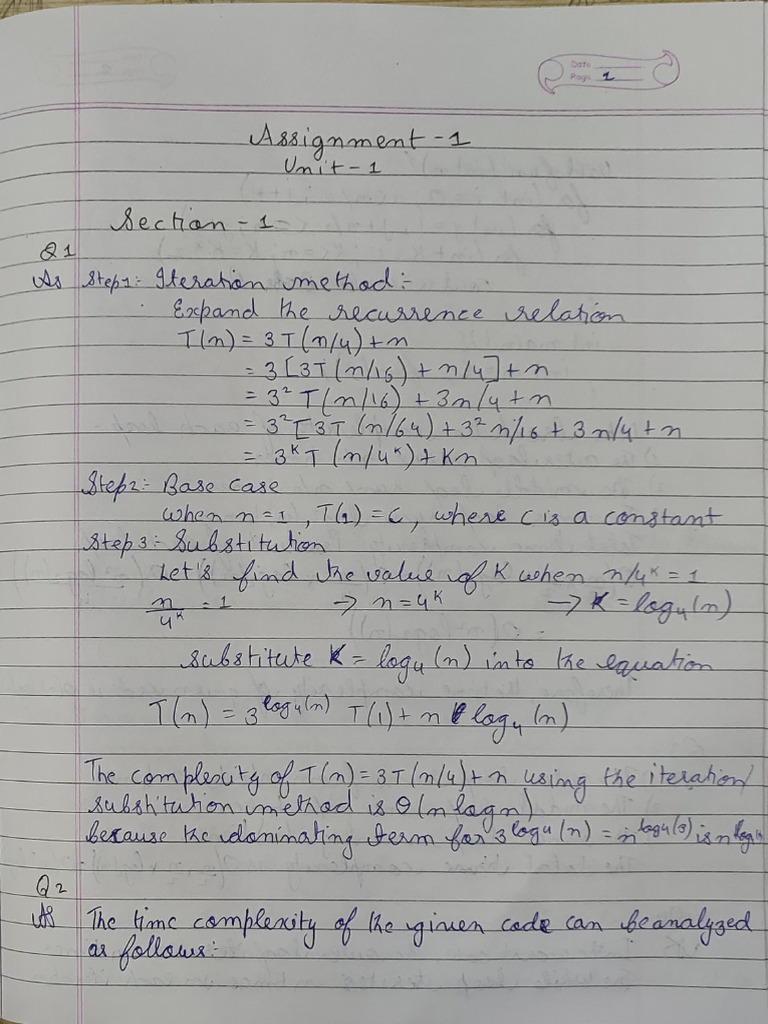 Date
Page 1
Assignment - 1
Unit - 1
Section - 1
Q1
As Step1:- Iteration method:-
Expand the recurrence relation
T(n) = 3T(n/4)+n
= 3[3T(n/16) + n/4]+n
= 3² T(n/16) + 3n/4 + n
= 3²[3T (n/64) + 3² n/16 + 3n/4 + n
= 3ᴷT (n/4ᴷ)+Kn
Step2:- Base case
when n=1 , T(1) = C, where C is a constant
Step3:- Substitution
Let's find the value of K when n/4ᴷ = 1
n/4ᴷ = 1 → n=4ᴷ → K = log₄(n)
substitute K = log₄(n) into the equation
T(n) = 3^log₄(n) T(1) + n log₄(n)
The complexity of T(n)=3T(n/4)+n using the iteration/
substitution method is θ(n logn)
because the dominating term for 3^log₄(n) = n^log₄(3) is n log n
Q2
As The time complexity of the given code can be analyzed
as follows:-